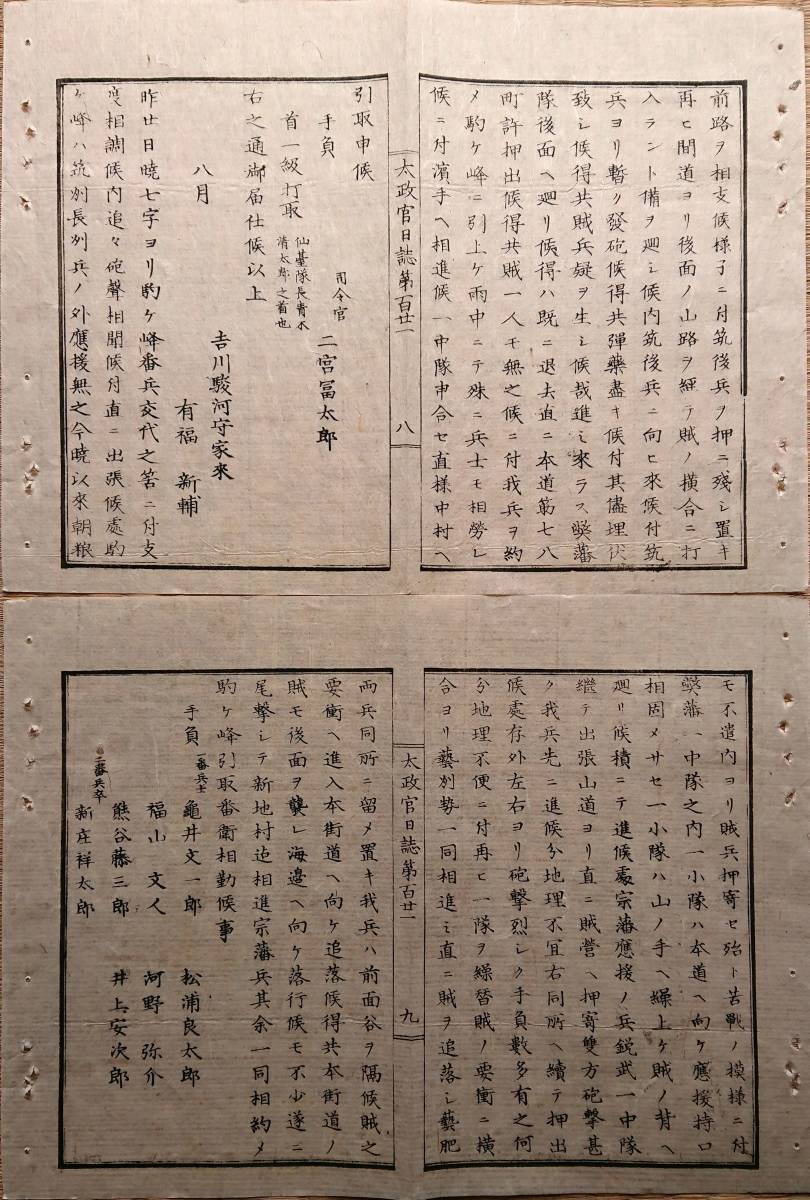 前路ヲ相支候様子ニ付筑後兵ヲ押ニ殘シ置キ
再ヒ間道ヨリ後面ノ山路ヲ經テ賊ノ横合ニ打
入ラント備ヲ廻シ候内筑後兵ニ向ヒ來候付筑
兵ヨリ暫ク發砲候得共彈藥盡キ候付其儘埋伏
致シ候得共賊兵疑ヲ生シ候哉進ミ來ラス弊藩
隊後面ヘ廻リ候得ハ既ニ退去直ニ本道筋七八
町許押出候得共賊一人モ無之候ニ付我兵ヲ約
メ駒ケ峰ニ引上ケ雨中ニテ殊ニ兵士モ相勞レ
候ニ付濱手ヘ相進候一中隊申合セ直様中村ヘ
太政官日誌第百廿一
八
引取申候
手負
司令官
二宮冨太郎
首一級打取
仙臺隊長青木
清太郎之首也
右之通御届仕候以上
八月
吉川駿河守家來
有福新輔
昨廿日曉七字ヨリ駒ケ峰番兵交代之筈ニ付支
度相調候内追々砲聲相聞候付直ニ出張候處駒
ケ峰ハ筑州長州兵ノ外應援無之今曉以來朝粮
モ不遣内ヨリ賊兵押寄セ殆ト苦戰ノ摸様ニ付
弊藩一中隊之内一小隊ハ本道ヘ向ケ應援持口
相固メサセ一小隊ハ山ノ手ヘ繰上ケ賊ノ背ヘ
廻リ候積ニテ進候處宗藩應援ノ兵鋭武一中隊
繼テ出張山道ヨリ直ニ賊營ヘ押寄雙方砲撃甚
ク我兵先ニ進候分地理不宜右同所ヘ續テ押出
候處存外左右ヨリ砲撃烈シク手負數多有之何
分地理不便ニ付再ヒ一隊ヲ繰替賊ノ要衝ニ横
合ヨリ藝州勢一同相進ミ直ニ賊ヲ追落シ藝肥
太政官日誌第百廿一
九
両兵同所ニ留メ置キ我兵ハ前面谷ヲ隔候賊之
要衝ヘ進入本街道ヘ向ケ追落候得共本街道ノ
賊モ後面ヲ襲レ海邊ヘ向ケ落行候モ不少遂ニ
尾撃シテ新地村迄相進宗藩兵其余一同相約メ
駒ケ峰引取番衛相勤候事
手負
一番兵士
龜井文一郎
松浦良太郎
福山文人
河野弥介
熊谷藤三郎
井上安次郎
二番兵卒
新庄祥太郎